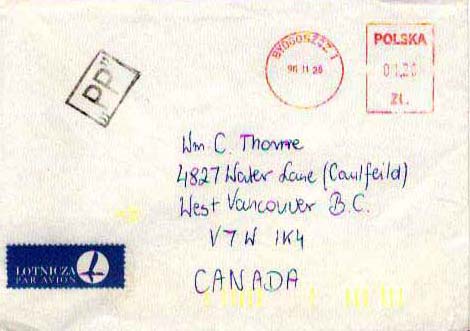 BYDGOSZCZ 1
96 11 26
POLSKA
01,20
ZŁ.
„PP”
Wm C. Thorne
4827 Water Lane (Caulfeild)
West Vancouver B.C.
V7W 1K4
CANADA
LOTNICZA
PAR AVION